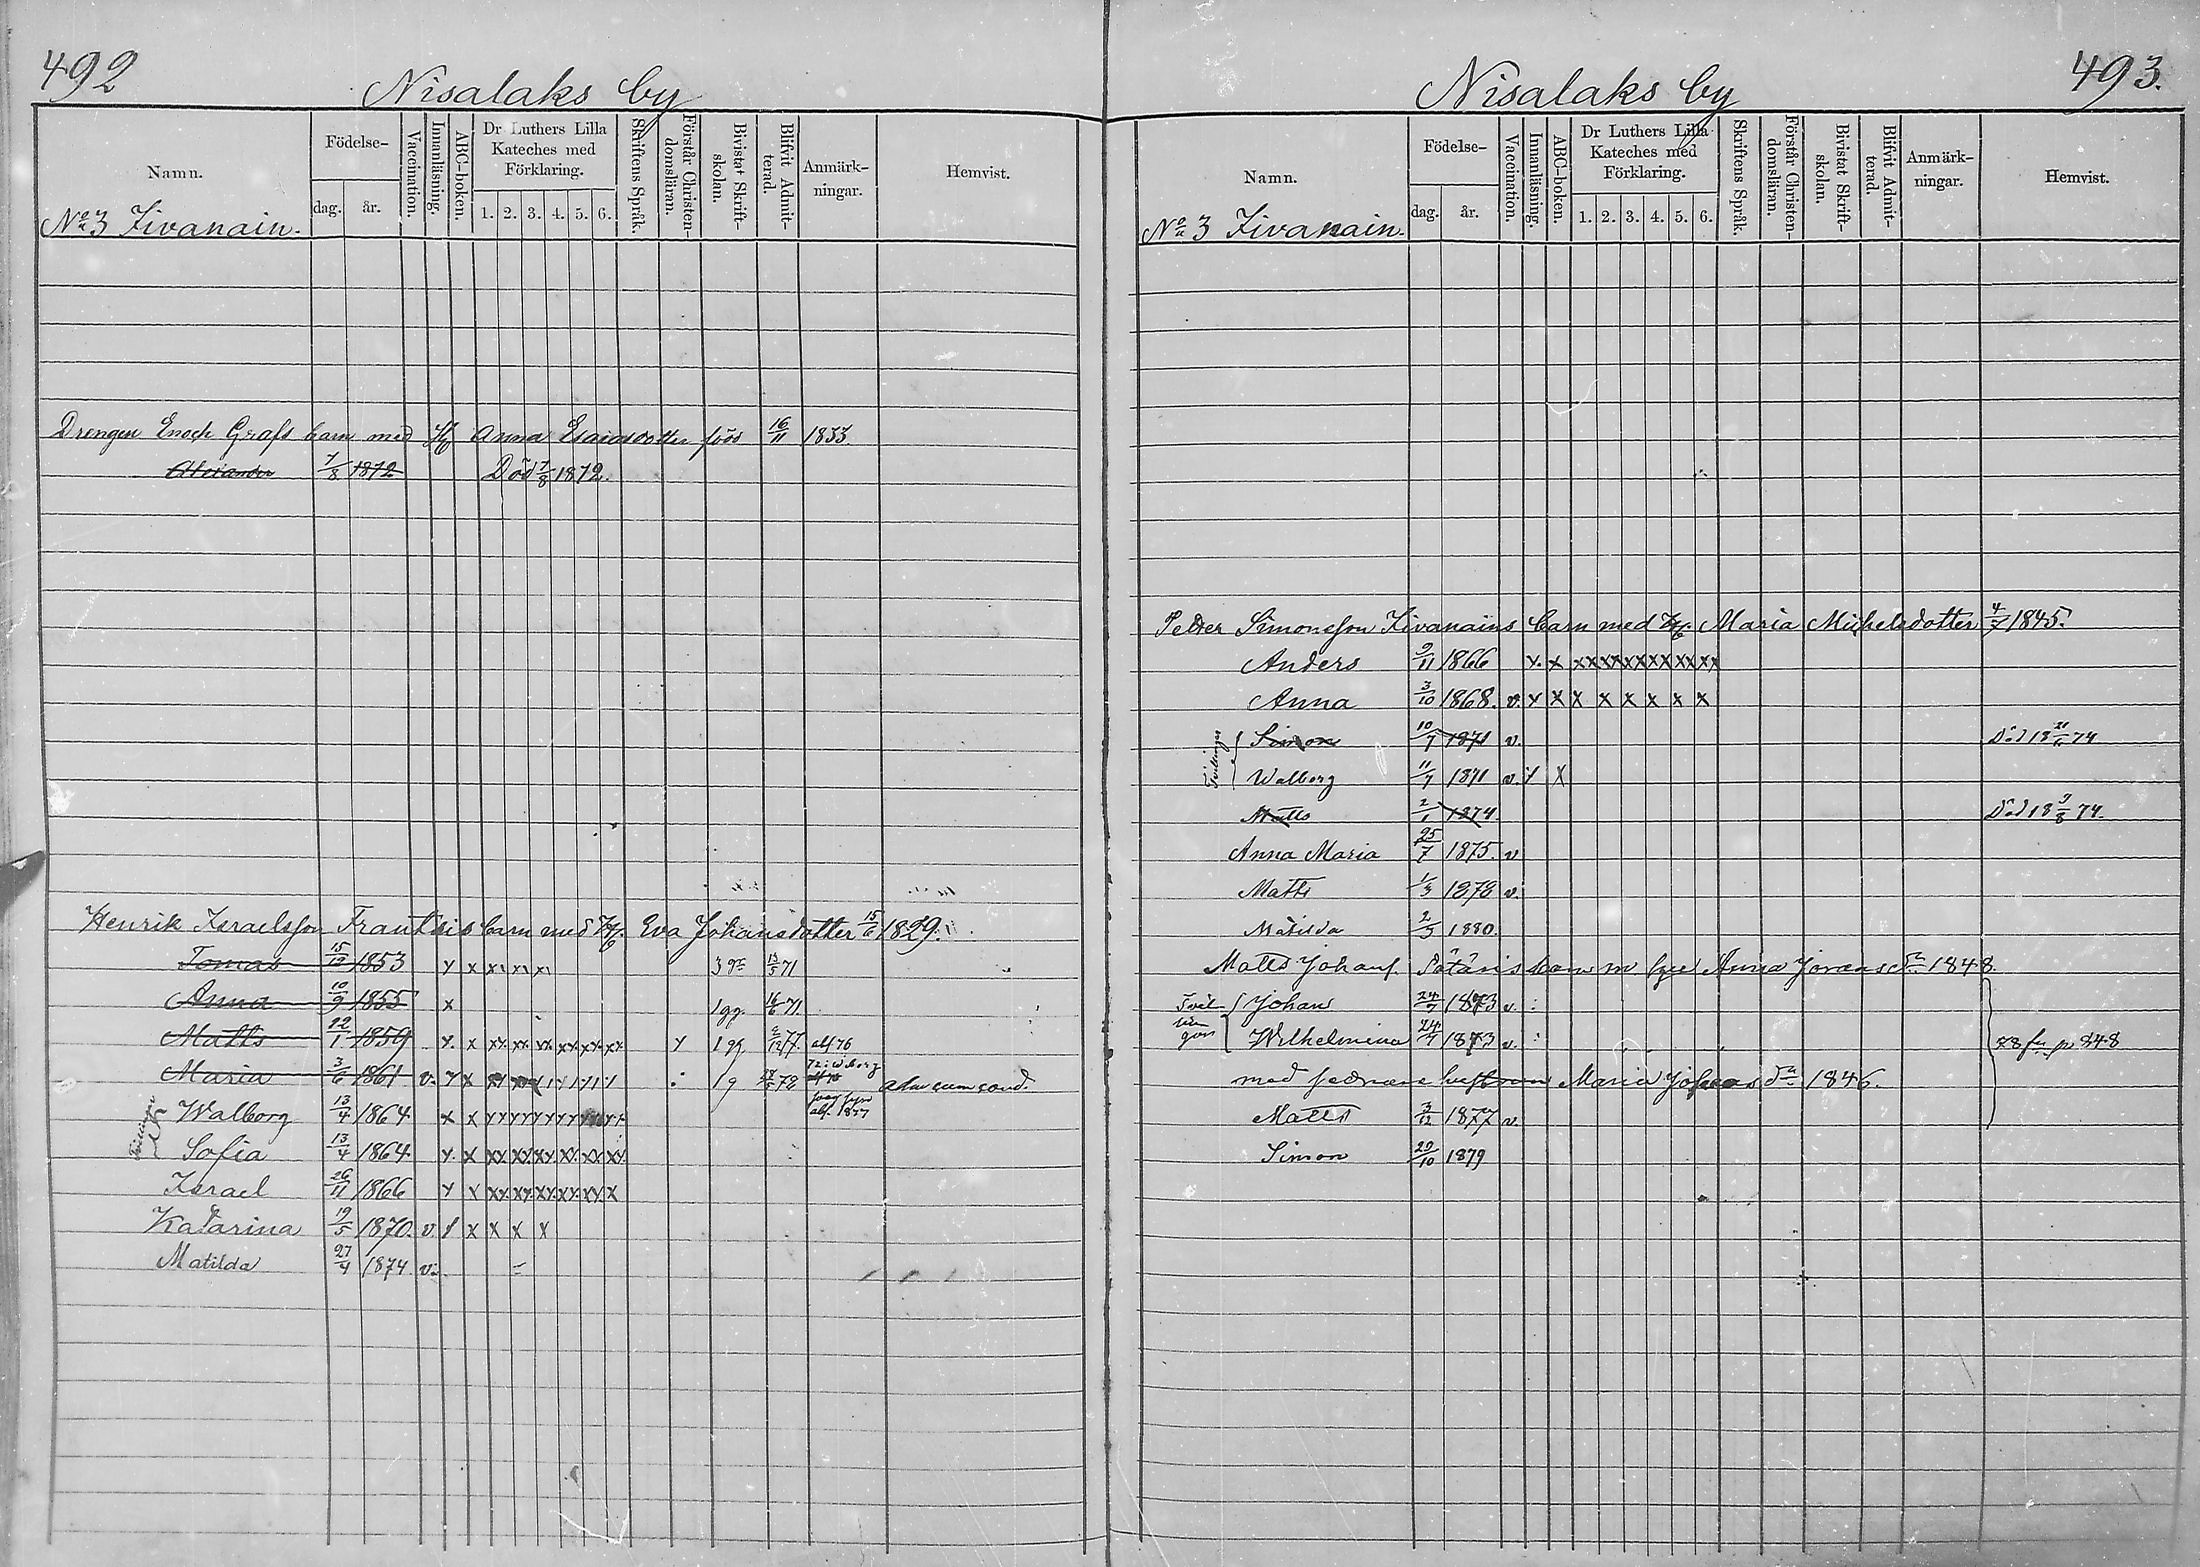 492
Nisalaks by
Namn.
Födelse-
dag. år.
Vaccination.
Innanläsning.
ABC-boken.
Dr Luthers Lilla Kateches med Förklaring.
1. 2. 3. 4. 5. 6.
Skriftens Språk.
Förstår Christendomsläran.
Bivistat Skriftskolan.
Blifvit Admitterad.
Anmärkningar.
Hemvist.
No 3 Kivanain.
Drengen Enoch Grafs barn med Anna Esaiasdotter född 16/11 1853.
Alexander 7/8 1872 Död 7/8 1872.
Henrik Israelsson Frantsis barn med Eva Johansdotter 15/6 1829.
Tomas 15/12 1853 x x 13/5 71
Anna 10/9 1855 x 1 gg. 16/6 71.
Matts 22/1 1859 x x x 1 gg 77.
Maria 3/6 1861 v. x x 1 g 78 cum cond.
Walborg 13/4 1864 x x
Sofia 13/4 1864 x x
Israel 26/11 1866 x x
Katarina 19/5 1870. v. x x x x x
Matilda 27/4 1874. v.
493.
Nisalaks by
Namn.
Födelse-
dag. år.
Vaccination.
Innanläsning.
ABC-boken.
Dr Luthers Lilla Kateches med Förklaring.
1. 2. 3. 4. 5. 6.
Skriftens Språk.
Förstår Christendomsläran.
Bivistat Skriftskolan.
Blifvit Admitterad.
Anmärkningar.
Hemvist.
No 3 Kivanain.
Petter Simonsson Kivanains barn med Maria Michelsdotter 4/7 1845.
Anders 9/11 1866 x x
Anna 3/10 1868. v. x x x x x x x x
Tvillingar
Simon 10/7 1871 v. Död 18 74
Walborg 11/7 1871 v. x x
Matts 2/1 1874 Död 18 9/8 74.
Anna Maria 25/7 1875. v
Matts 1/3 1878 v.
Matilda 2/3 1880.
Matts Johans. barn m Anna 1848
Johan 24/7 1873 v.
Wilhelmina 24/7 1873 v. 848
med Maria 1846.
Matts 3/12 1877 v.
Simon 29/10 1879